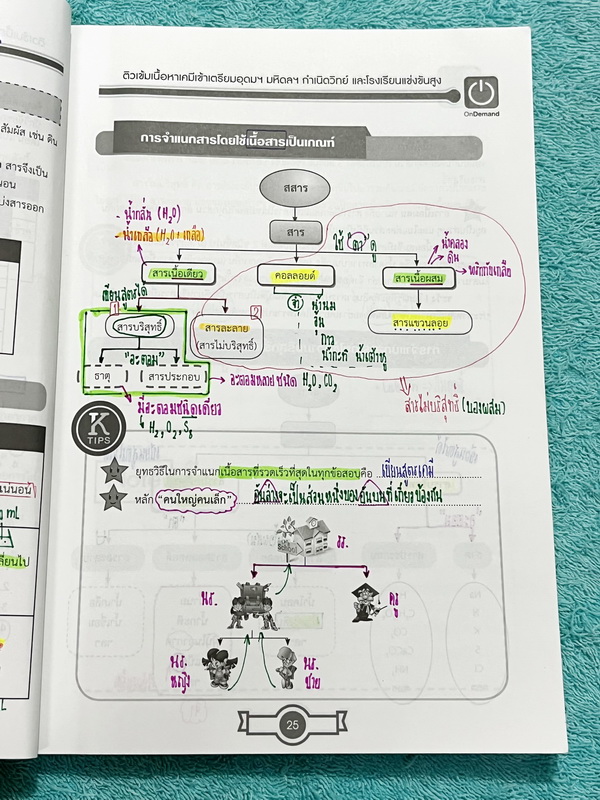 ติวเข้มเนื้อหาเคมีเข้าเตรียมอุดมฯ มหิดลฯ กำเนิดวิทย์ และโรงเรียนแข่งขันสูง
OnDemand
การจำแนกสารโดยใช้เนื้อสารเป็นเกณฑ์
สสาร
สาร
- น้ำกลั่น (H₂O)
- น้ำเกลือ (H₂O + เกลือ)
ใช้ "ตา" ดู
น้ำคลอง
ดิน
พริกกับเกลือ
สารเนื้อเดียว
คอลลอยด์
สารเนื้อผสม
เขียนสูตรได้
1
สารบริสุทธิ์
2
สารละลาย
(สารไม่บริสุทธิ์)
น้ำนม
วุ้น
กาว
น้ำกะทิ น้ำเต้าหู้
สารแขวนลอย
"อะตอม"
ธาตุ
สารประกอบ
อะตอมหลายชนิด H₂O, CO₂
มีอะตอมชนิดเดียว
H₂, O₂, S₈
สารไม่บริสุทธิ์ (ของผสม)
K
TIPS
ยุทธวิธีในการจำแนกเนื้อสารที่รวดเร็วที่สุดในทุกข้อสอบคือ เขียนสูตรเคมี
หลัก "คนใหญ่คนเล็ก" ขั้นล่างจะเป็นส่วนหนึ่งของขั้นบนที่เกี่ยวข้องกัน
รร.
นร.
ครู
นร.
หญิง
นร.
ชาย
25
สัมผัส เช่น ดิน
สารจึงเป็น